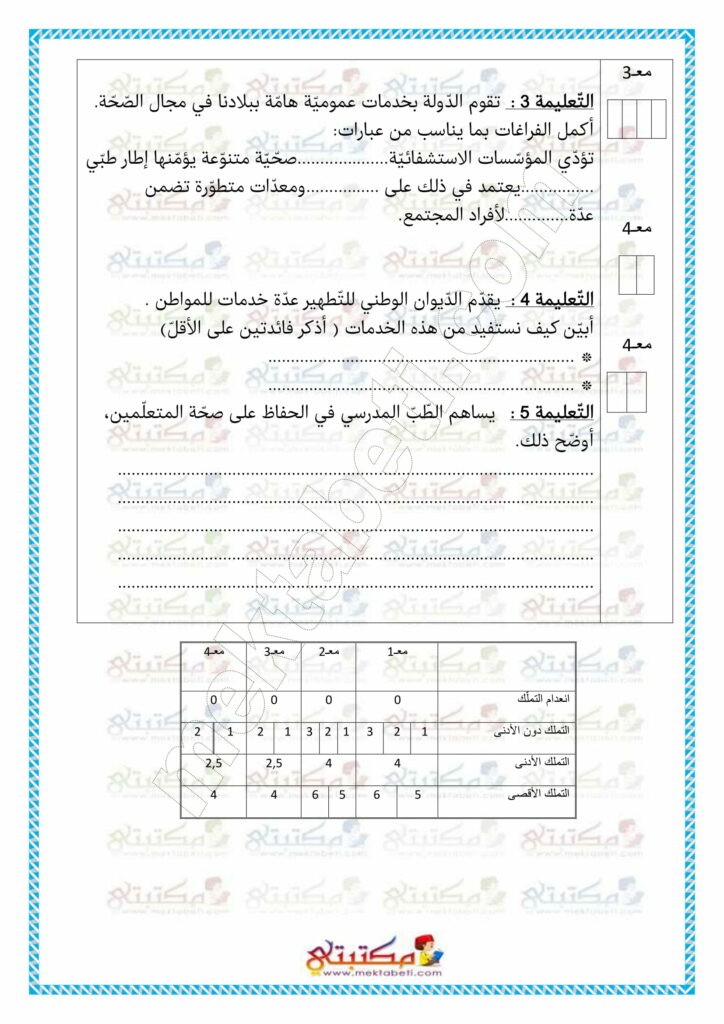 معـ3
التّعليمة 3 : تقوم الدّولة بخدمات عموميّة هامّة ببلادنا في مجال الصّحّة.
أكمل الفراغات بما يناسب من عبارات:
تؤدّي المؤسّسات الاستشفائيّة...................صحّيّة متنوّعة يؤمّنها إطار طبّي
...............يعتمد في ذلك على ...............ومعدّات متطوّرة تضمن
عدّة.............لأفراد المجتمع.
معـ4
التّعليمة 4 : يقدّم الدّيوان الوطني للتّطهير عدّة خدمات للمواطن .
أبيّن كيف نستفيد من هذه الخدمات ( أذكر فائدتين على الأقلّ)
معـ4
❊ ................................................................
❊ ................................................................
التّعليمة 5 : يساهم الطّبّ المدرسي في الحفاظ على صحّة المتعلّمين،
أوضّح ذلك.
....................................................................................................
....................................................................................................
....................................................................................................
....................................................................................................
....................................................................................................
معـ1 معـ2 معـ3 معـ4
انعدام التملّك 0 0 0 0
التملك دون الأدنى 1 2 3 1 2 3 1 2 1 2
التملك الأدنى 4 4 2,5 2,5
التملك الأقصى 5 6 5 6 4 4
mektabeti.com
مكتبتي
www.mektabeti.com